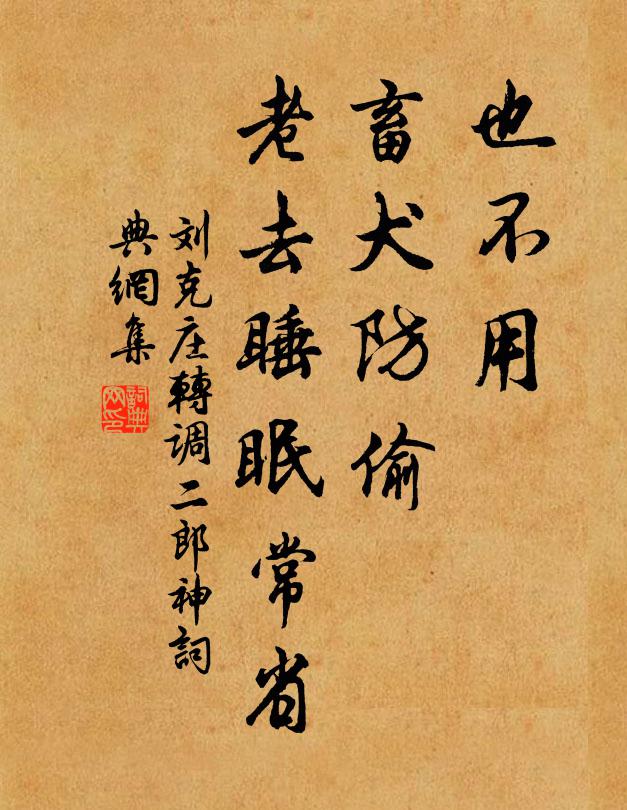 也不用
畜犬防偷
老去睡眠常省
刘克庄轉调二郎神詞
典網集
詞典網印